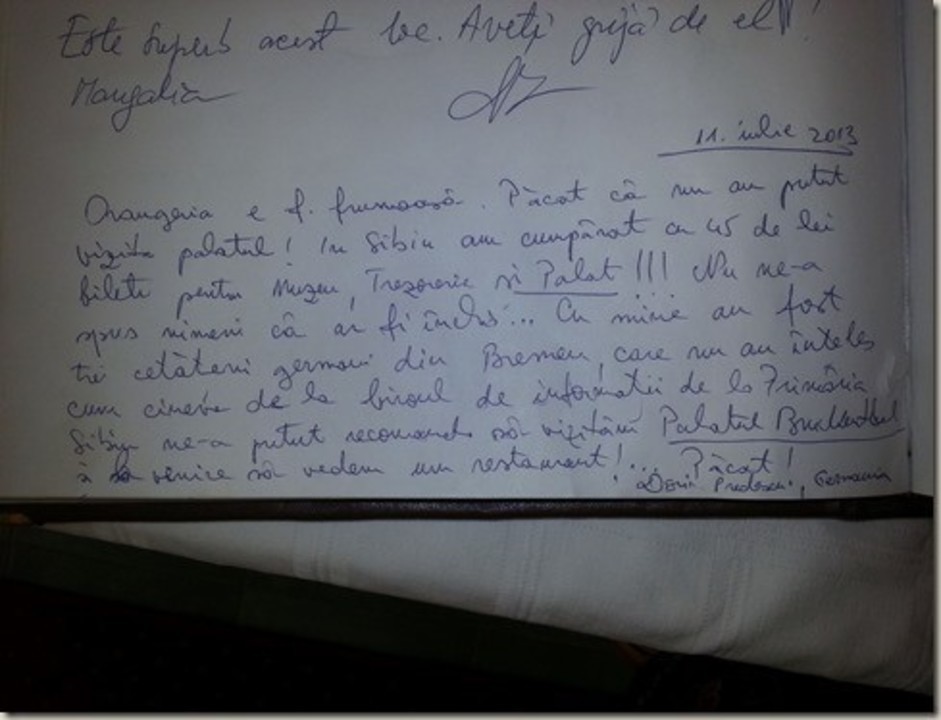 Este superb acest loc. Aveți grijă de el!
Mangalia
11. iulie 2013
Orangeria e f. frumoasă. Păcat că nu am putut
vizita palatul! In Sibiu am cumpărat cu 45 de lei
bilete pentru Muzeu, Trezorerie și Palat!!! Nu ne-a
spus nimeni că ar fi închis... Cu mine au fost
trei cetățeni germani din Bremen, care nu au înțeles
cum cineva de la biroul de informații de la Primăria
Sibiu ne-a putut recomanda să vizităm Palatul Brukenthal
și să venim să vedem un restaurant!... Păcat!
Germania